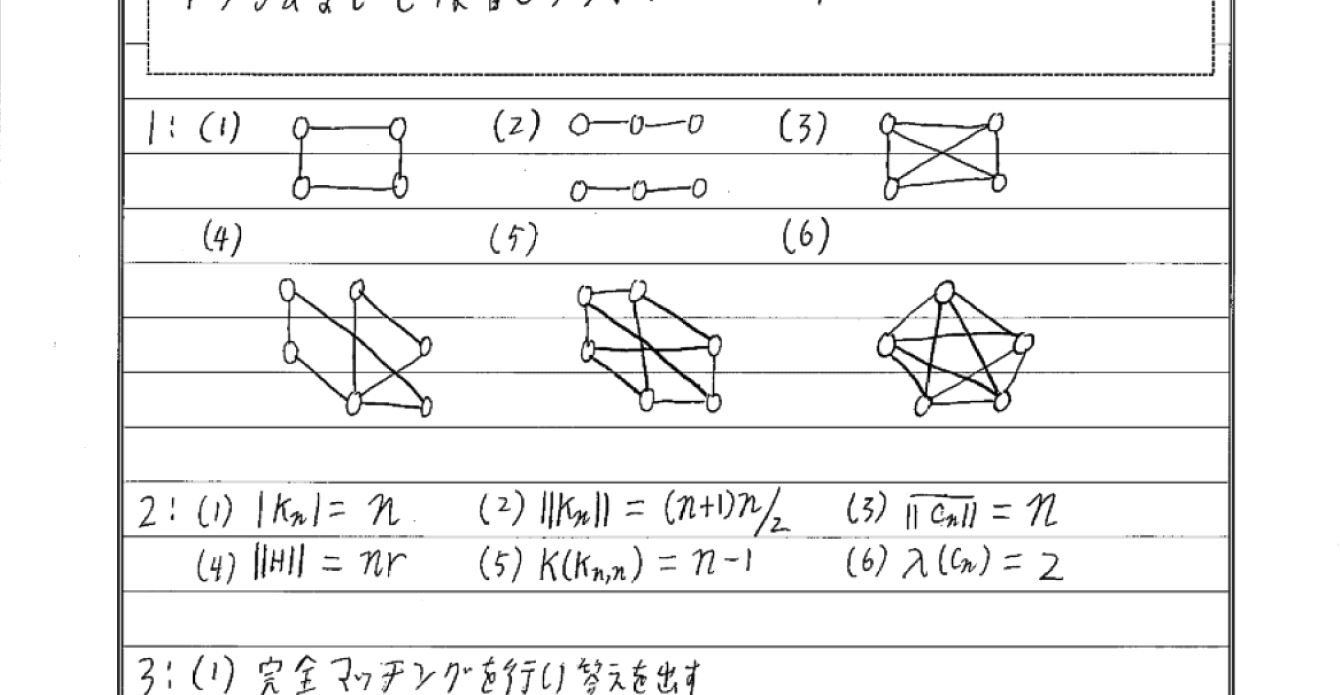 1: (1) (2) (3)
(4) (5) (6)
2: (1) |Kn| = n (2) ||Kn|| = (n+1)n/2 (3) \overline{||Cn||} = n
(4) ||H|| = nr (5) K(Kn,n) = n-1 (6) λ(Cn) = 2
3: (1) 完全マッチングを行い答えを出す